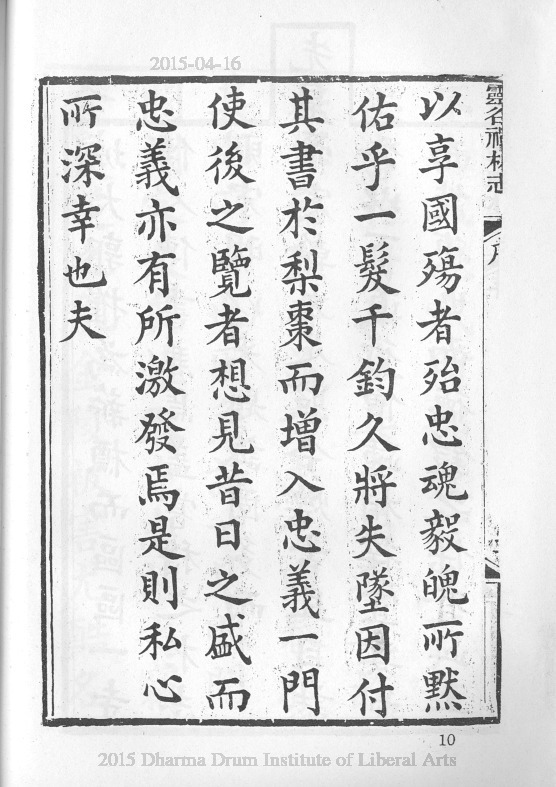 2015-04-16
靈谷禪林志
序
以享國殤者殆忠魂毅魄所默
佑乎一髮千鈞久將失墜因付
其書於梨棗而增入忠義一門
使後之覽者想見昔日之盛而
忠義亦有所激發焉是則私心
所深幸也夫
10
2015 Dharma Drum Institute of Liberal Arts